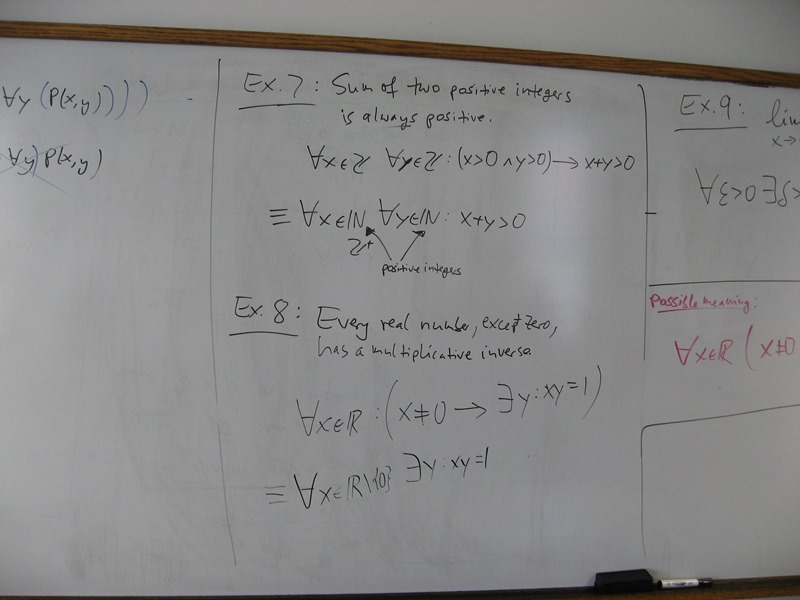 ∀y (P(x,y))))
∀y) P(x,y)
Ex. 7: Sum of two positive integers
is always positive.
∀x∈ℤ ∀y∈ℤ: (x>0 ∧ y>0) → x+y>0
≡ ∀x∈ℕ ∀y∈ℕ: x+y>0
ℤ+
positive integers
Ex. 8: Every real number, except zero,
has a multiplicative inverse
∀x∈ℝ: (x≠0 → ∃y: xy=1)
≡ ∀x∈ℝ\{0} ∃y: xy=1
Ex. 9: lim
x→
∀ε>0 ∃δ>
Possible meaning:
∀x∈ℝ (x≠0